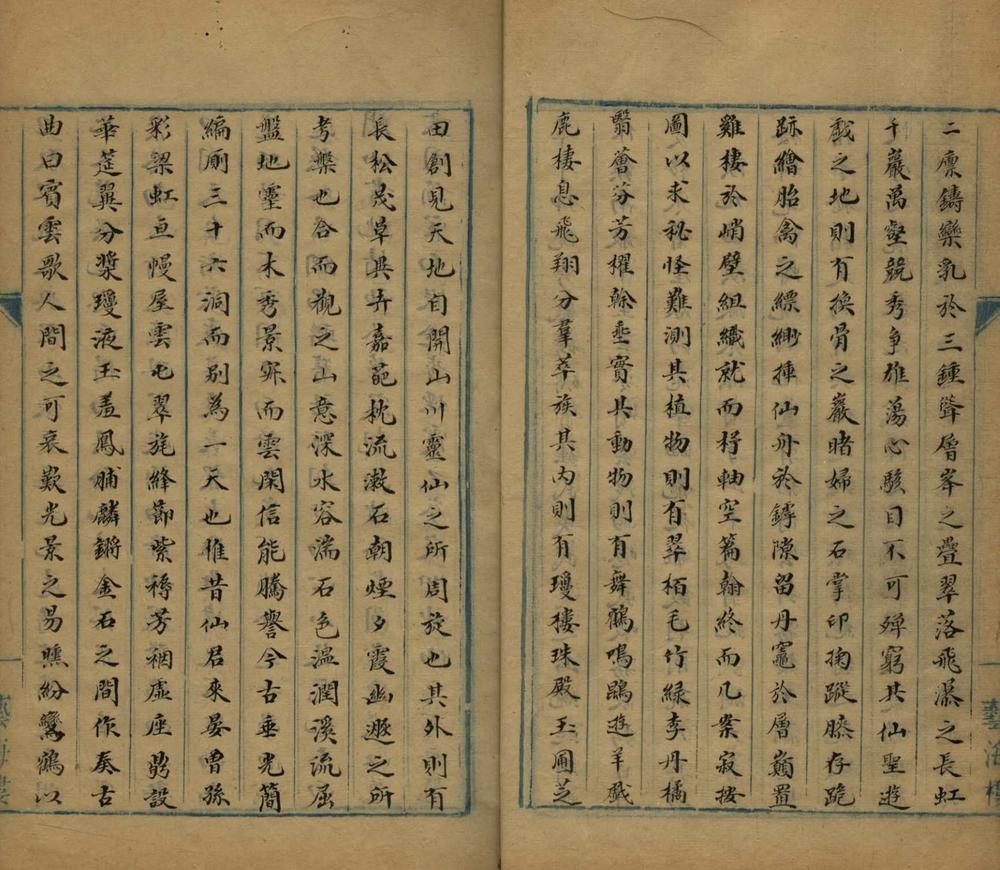 二廩鑄欒乳於三鍾聳層峯之疊翠落飛瀑之長虹
千巖萬壑競秀爭雄蕩心駭目不可殫窮其仙聖遊
戲之地則有換骨之巖睹婦之石掌印掬蹤膝存跪
跡繪胎禽之縹緲揷仙舟於罅隙留丹竈於層巔置
雞棲於峭壁組織就而杼軸空篇翰終而几案寂按
圖以求秘怪難測其植物則有翠栢毛竹綠李丹橘
翳薈芬芳擢榦垂實其動物則有舞鶴鳴鷗遊羊戯
鹿棲息飛翔分羣萃族其內則有瓊樓珠殿玉圃芝
田創見天地自開山川靈仙之所周旋也其外則有
長松茂草異卉嘉葩枕流漱石朝煙夕霞幽遯之所
考槃也合而觀之山意深水容湍石色溫潤溪流屈
盤地靈而木秀景寂而雲閑信能騰譽今古垂光簡
編廁三十六洞而別為一天也惟昔仙君來晏曾孫
彩梁虹亘幔屋雲屯翠旄絳節紫褥芳裀虛座鼎設
華莚翼分漿瓊液玉羞鳳脯麟鏘金石之間作奏古
曲曰賓雲歌人間之可哀歎光景之易曛紛鸞鶴以
藝海樓